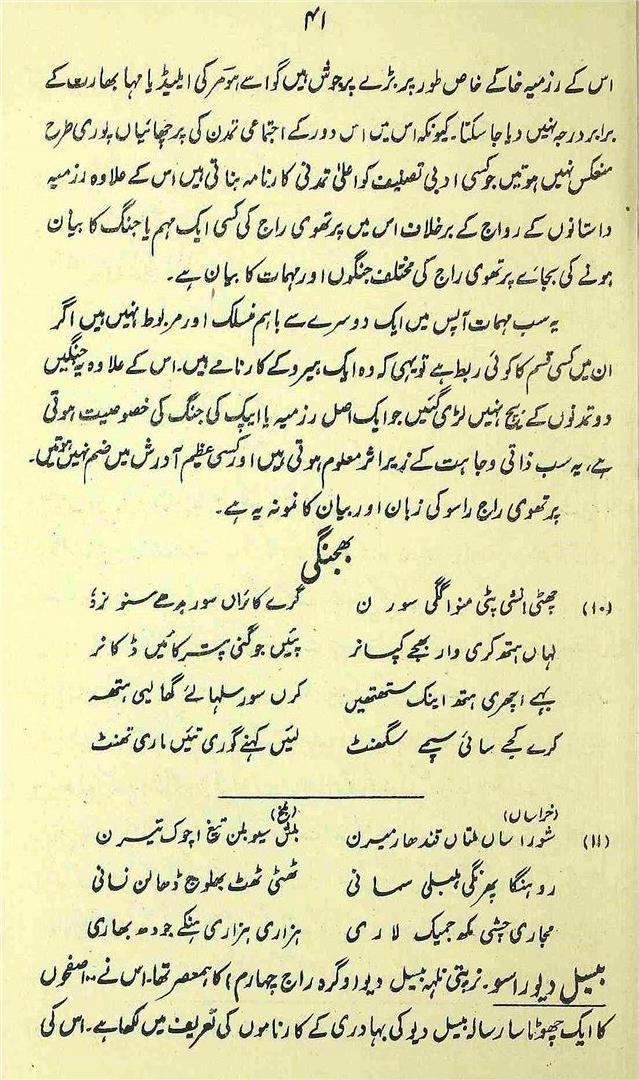 ۴۱
اس کے رزمیہ خاکے خاص طور پر بڑے پرجوش ہیں گو اسے ہومر کی ایلیڈ یا مہا بھارت کے
برابر درجہ نہیں دیا جا سکتا۔ کیونکہ اس میں اس دور کے اجتماعی تمدن کی پرچھائیاں پوری طرح
منعکس نہیں ہوتیں جو کسی ادبی تصنیف کو اعلیٰ تمدنی کارنامہ بناتی ہیں اس کے علاوہ رزمیہ
داستانوں کے رواج کے برخلاف اس میں پرتھوی راج کی کسی ایک مہم یا جنگ کا بیان
ہونے کی بجائے پرتھوی راج کی مختلف جنگوں اور مہمات کا بیان ہے۔
یہ سب مہمات آپس میں ایک دوسرے سے باہم منسلک اور مربوط نہیں ہیں اگر
ان میں کسی قسم کا کوئی ربط ہے تو یہی کہ وہ ایک ہیرو کے کارنامے ہیں۔ اس کے علاوہ یہ جنگیں
دو تمدنوں کے بیچ نہیں لڑی گئیں جو ایک اصل رزمیہ یا ایپک کی جنگ کی خصوصیت ہوتی
ہے، یہ سب ذاتی وجاہت کے زیر اثر معلوم ہوتی ہیں اور کسی عظیم آدرش میں ضم نہیں ہوتیں۔
پرتھوی راج راسو کی زبان اور بیان کا نمونہ یہ ہے۔
بھجنگی
(۱۰) چھٹی انشی پٹی منو اگلگی سورن گرے کائراں سور بدھے سنو
لہاں ہتھ کری وار بھجے کپانر پئیں جوگنی پتر کائیں ڈکانر
بہے اچھری ہتھ اینک کرں سور سلہائے گھا لیی ہتھہ
کرے کجے سائی سپے سگھنٹ لیئں کہنے گوری تئیں ماری تھنٹ
(خراساں) (بلخ)
(۱۱) شوراساں ملتاں قندھار میرن بلش سیوبلن تیغ اچوک تیرن
روہنگا پھرنگی ہلبلی سمانی ٹھٹی ٹھٹ بھلوچ ڈھالن نسانی
مجاری چشی مکھ جمبک لاری ہزاری ہزاری ہنکے جودھ بھاری
بیسل دیو راسو۔ نرپتی نلہہ بیسل دیو (وگرہ راج چہارم) کا ہمعصر تھا۔ اس نے ۱۰۰ صفحوں
کا ایک چھوٹا سا رسالہ بیسل دیو کی بہادری کے کارناموں کی تعریف میں لکھا ہے۔ اس کی